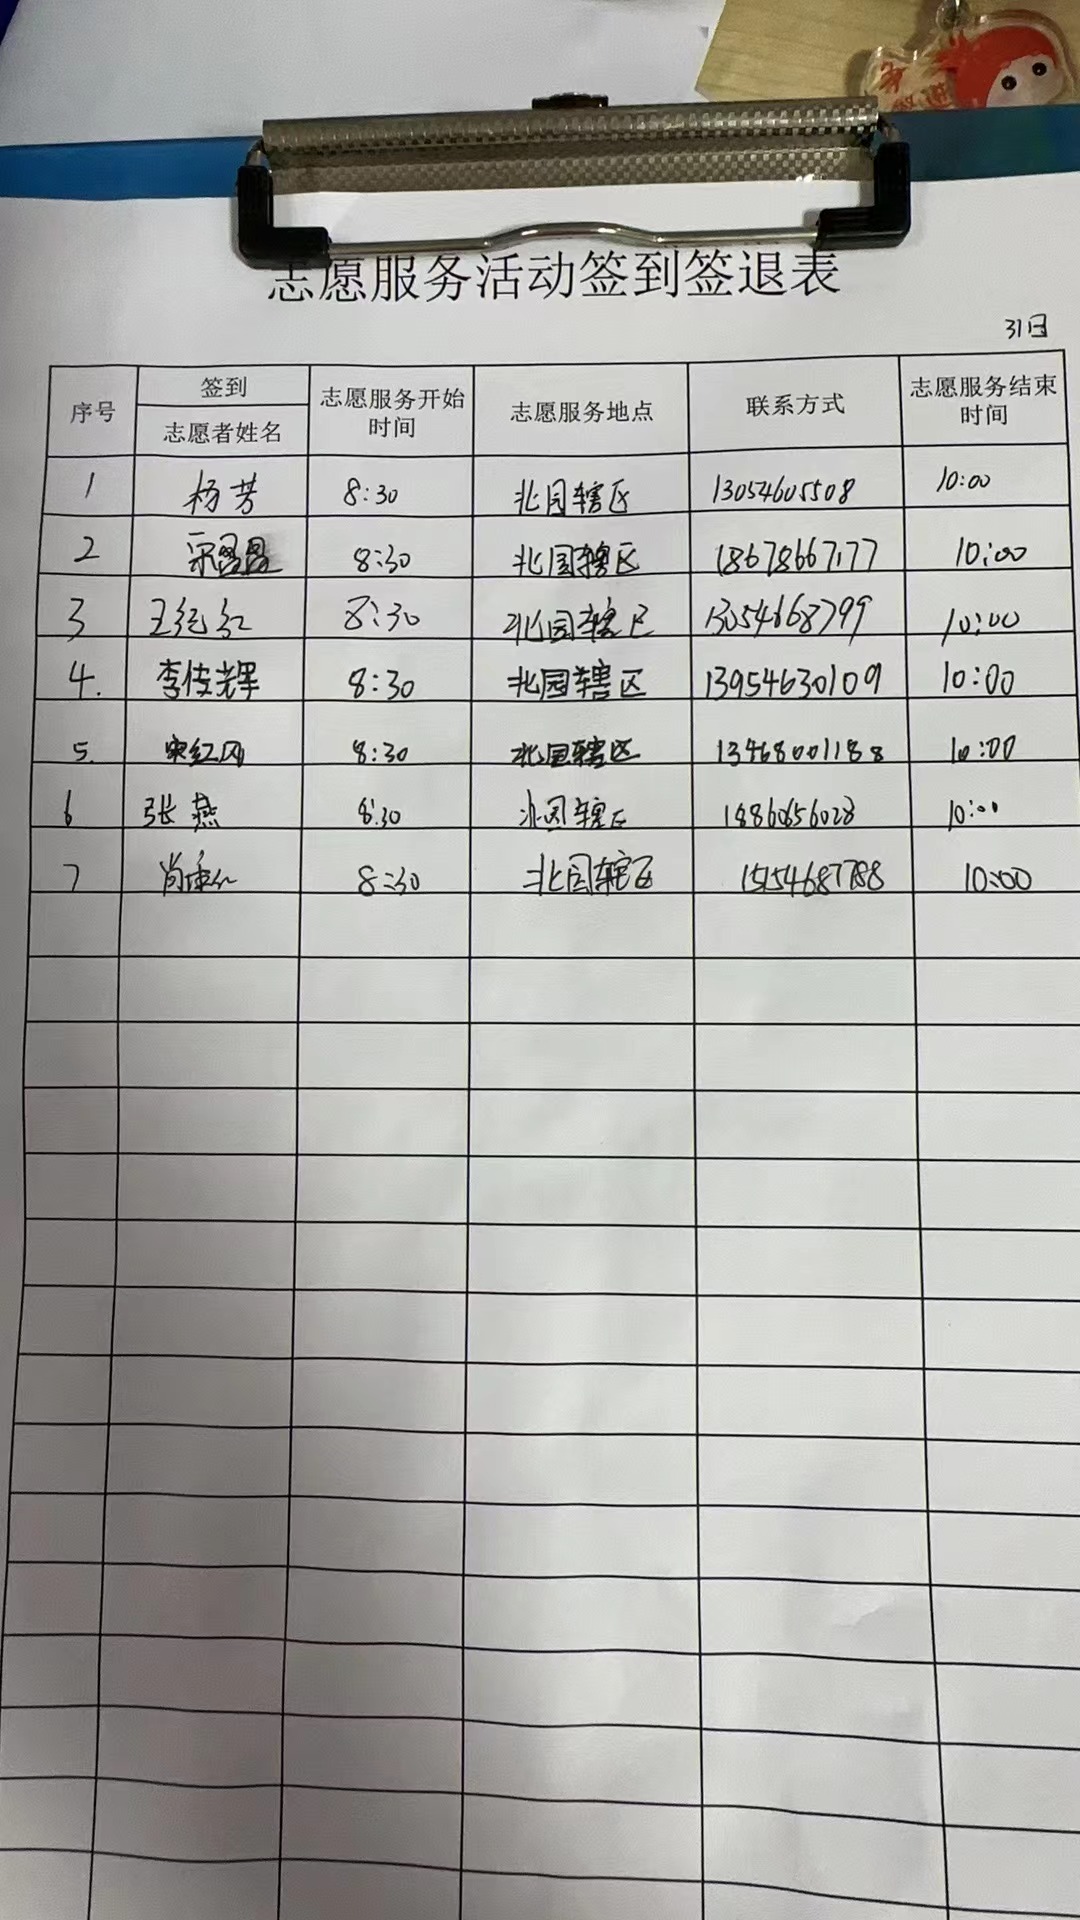 志愿服务活动签到签退表
31日
序号 签到 志愿者姓名 志愿服务开始时间 志愿服务地点 联系方式 志愿服务结束时间
1 杨芳 8:30 北园辖区 13054605508 10:00
2 宋 8:30 北园辖区 18678667177 10:00
3 王纪红 8:30 北园辖区 13054668799 10:00
4. 李传辉 8:30 北园辖区 13954630109 10:00
5. 宋红风 8:30 北园辖区 13468001188 10:00
6 张燕 8:30 北园辖区 10:00
7 肖 8:30 北园辖区 15154687788 10:00